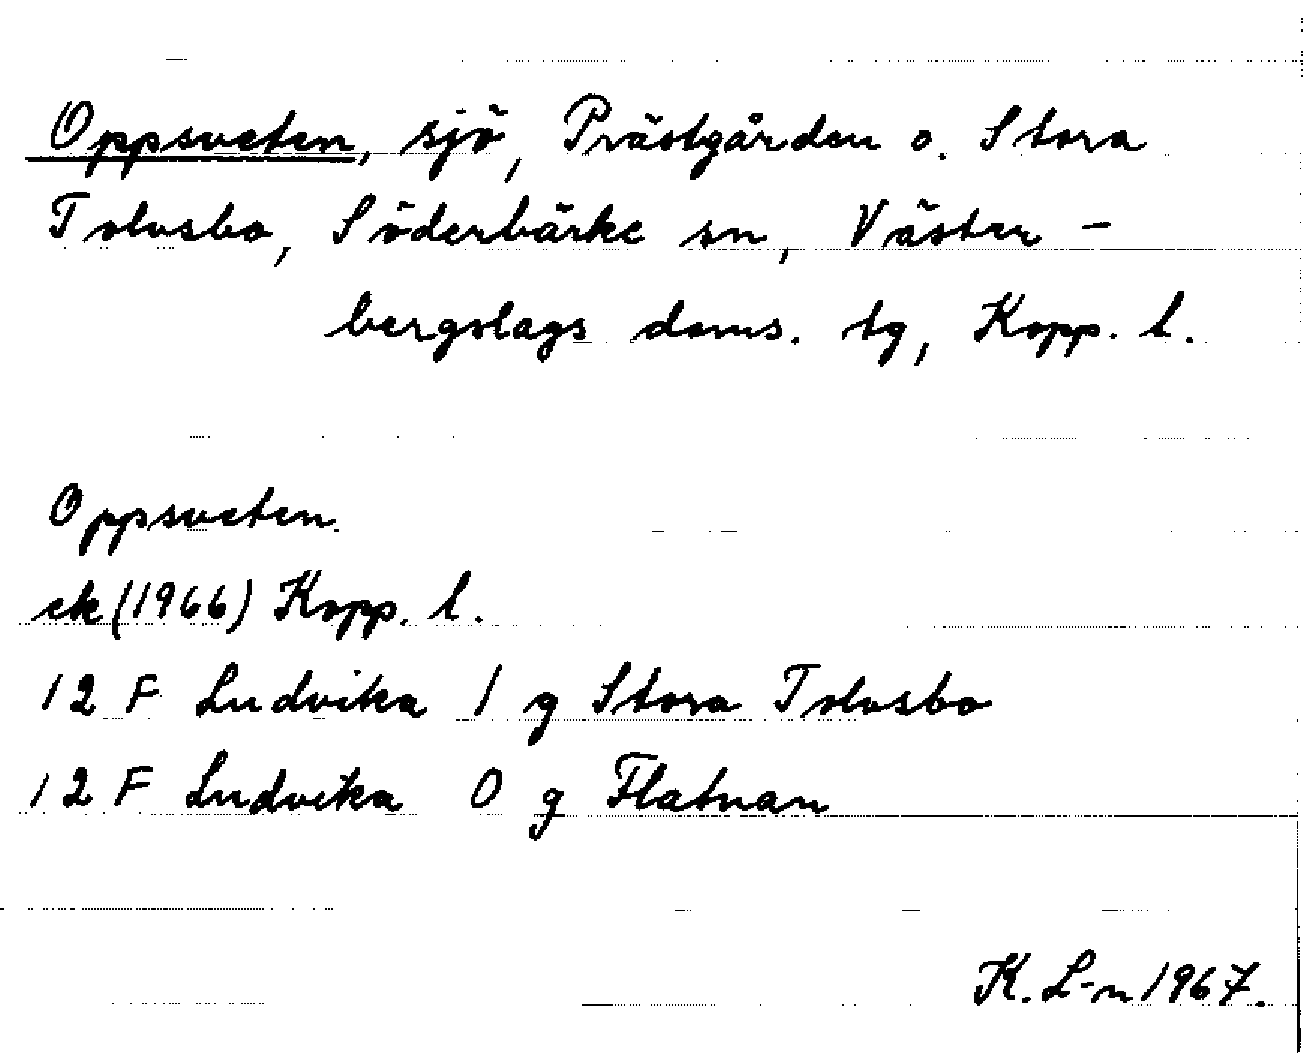 Oppsveten, sjö, Prästgården o. Stora
Tolvsbo, Söderbärke sn, Väster-
bergslags doms. tg, Kopp. l.
Oppsveten.
ek (1966) Kopp. l.
12 F Ludvika 1 g Stora Tolvsbo
12 F Ludvika 0 g Flatnan
K. L-n 1967.